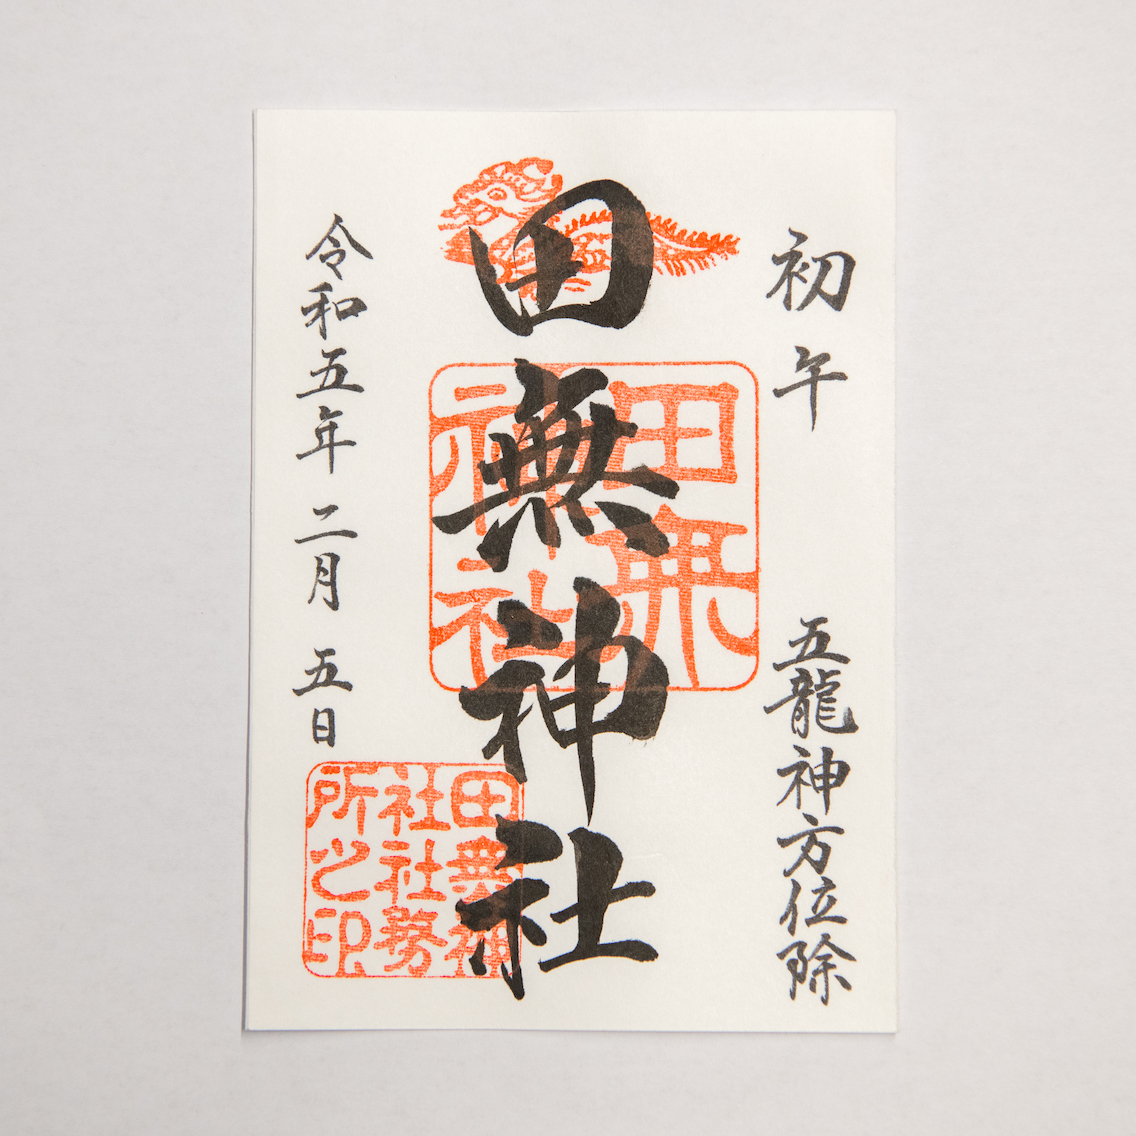 初午
五龍神方位除
田無神社
令和五年二月五日
田無
神社
田無神
社社務
所之印